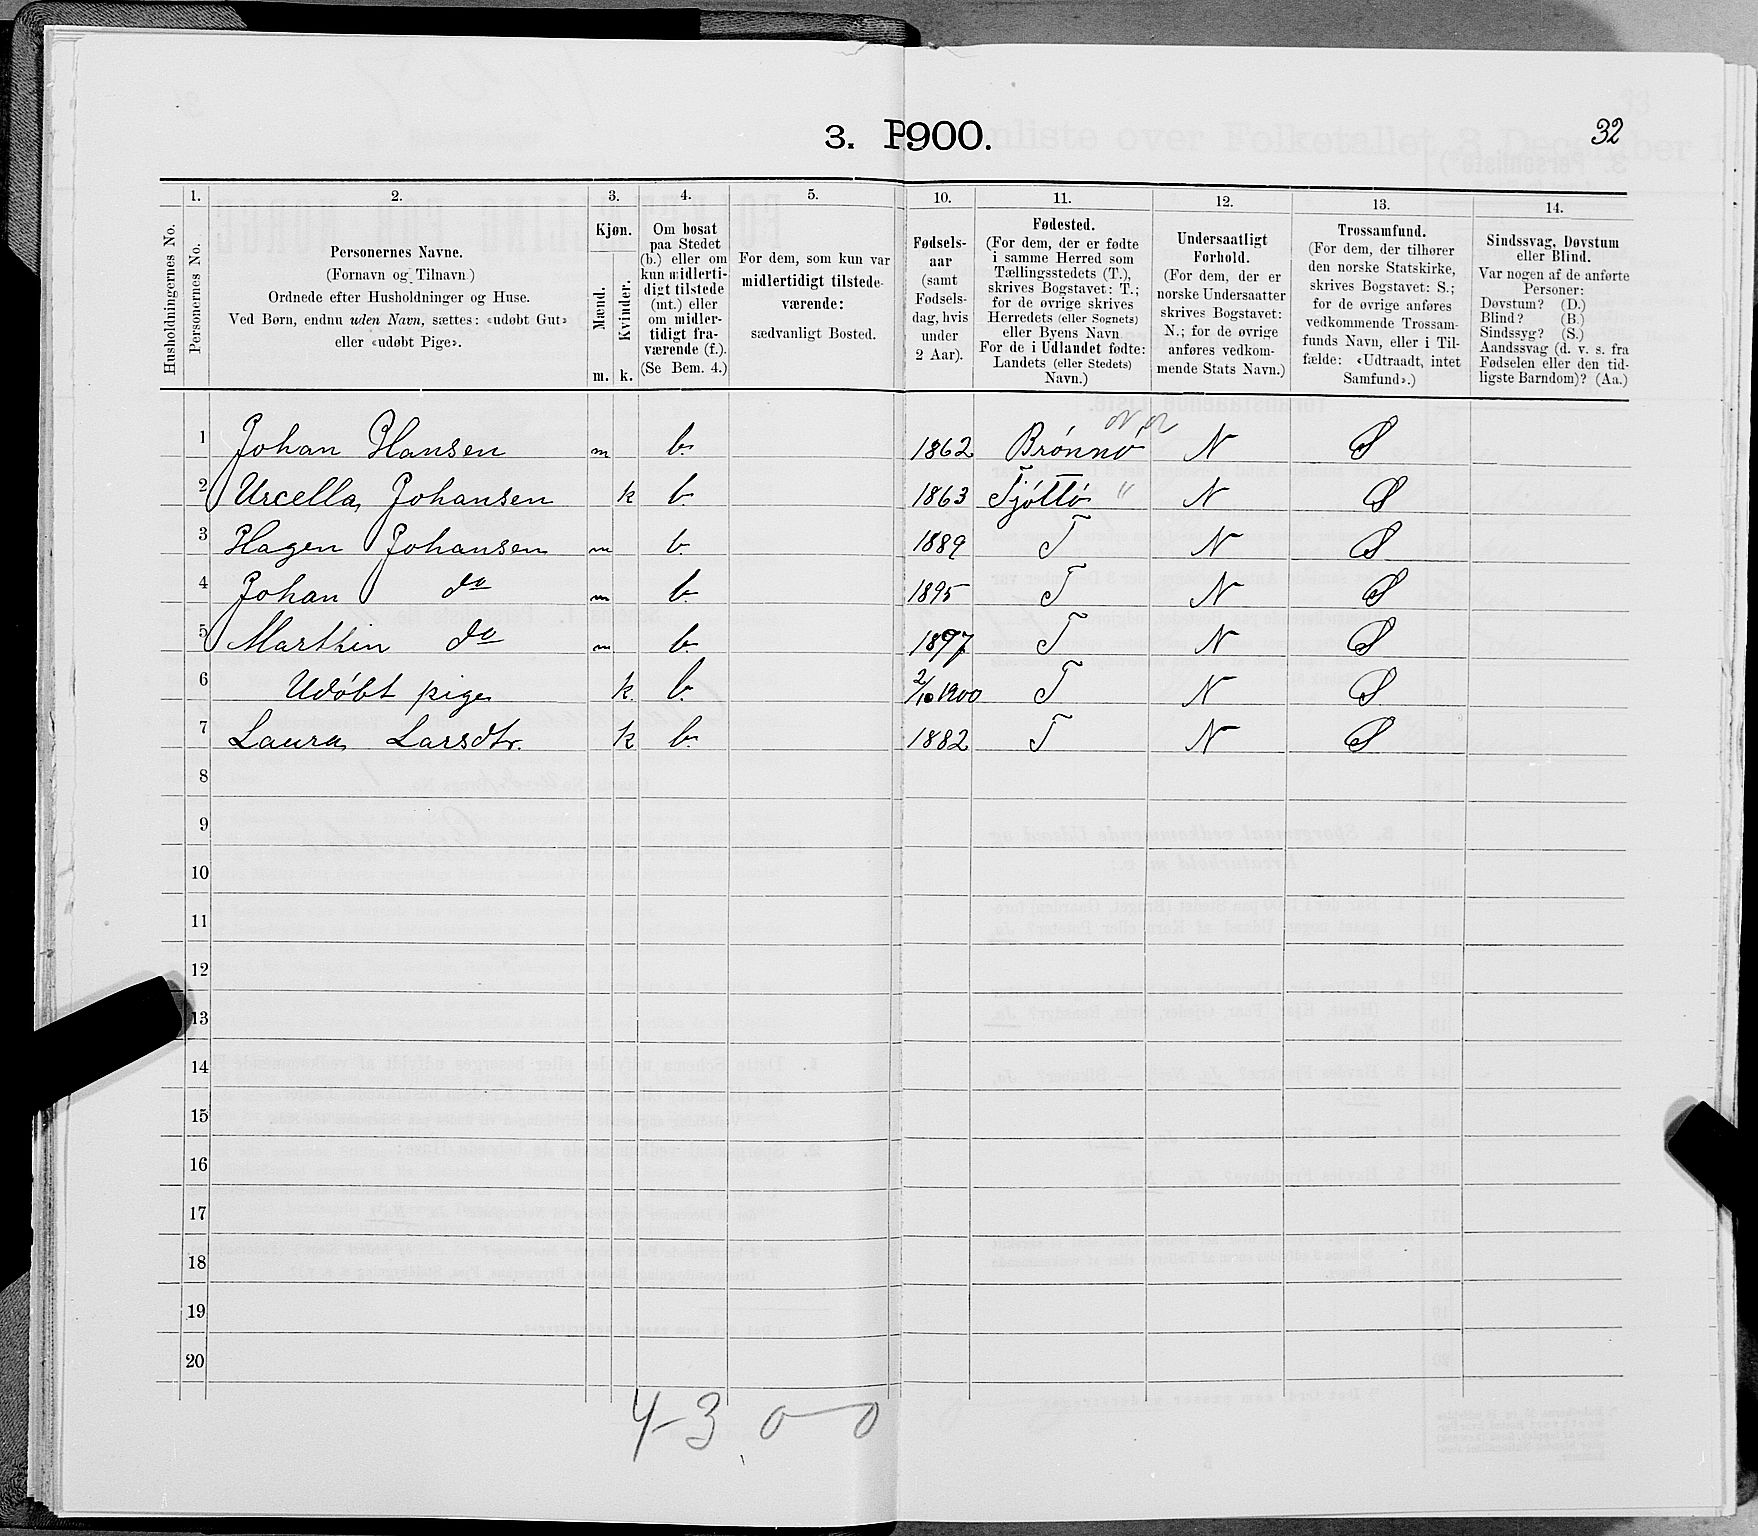 3. P900.
32
1. 2. 3. 4. 5. 10. 11. 12. 13. 14.
Husholdningernes No.
Personernes No.
Personernes Navne.
(Fornavn og Tilnavn)
Ordnede efter Husholdninger og Huse.
Ved Børn, endnu uden Navn, sættes: «udøbt Gut»
eller «udøbt Pige».
Kjøn.
Mænd.
Kvinder.
m. k.
Om bosat
paa Stedet
(b.) eller om
kun midlerti-
digt tilstede
(mt.) eller
om midler-
tidigt fra-
værende (f.).
(Se Bem. 4.)
For dem, som kun var
midlertidigt tilstede-
værende:
sædvanligt Bosted.
Fødsels-
aar
(samt
Fødsels-
dag, hvis
under
2 Aar).
Fødested.
(For dem, der er fødte
i samme Herred som
Tællingsstedets (T.),
skrives Bogstavet: T.;
for de øvrige skrives
Herredets (eller Sognets)
eller Byens Navn.
For de i Udlandet fødte:
Landets (eller Stedets)
Navn.)
Undersaatligt
Forhold.
(For dem, der er
norske Undersaatter
skrives Bogstavet:
N.; for de øvrige
anføres vedkom-
mende Stats Navn.)
Trossamfund.
(For dem, der tilhører
den norske Statskirke,
skrives Bogstavet: S.;
for de øvrige anføres
vedkommende Trossam-
funds Navn, eller i Til-
fælde: «Udtraadt, intet
Samfund».)
Sindssvag, Døvstum
eller Blind.
Var nogen af de anførte
Personer:
Døvstum? (D.)
Blind? (B.)
Sindssyg? (S.)
Aandssvag (d. v. s. fra
Fødselen eller den tid-
ligste Barndom)? (Aa.)
1 Johan Hansen m b. 1862 Brönnö N S
2 Urcella Johansen k b. 1863 Tjöttö " N S
3 Hagen Johansen m b. 1889 T N S
4 Johan do m b. 1895 T N S
5 Marthin do m b. 1897 T N S
6 Udöbt pige k. b. 2/10 1900 T N S
7 Laura Larsdtr. k b. 1882 T N S
8
9
10
11
12
13
14
15
16
17
18
19
20
4-3 0-0